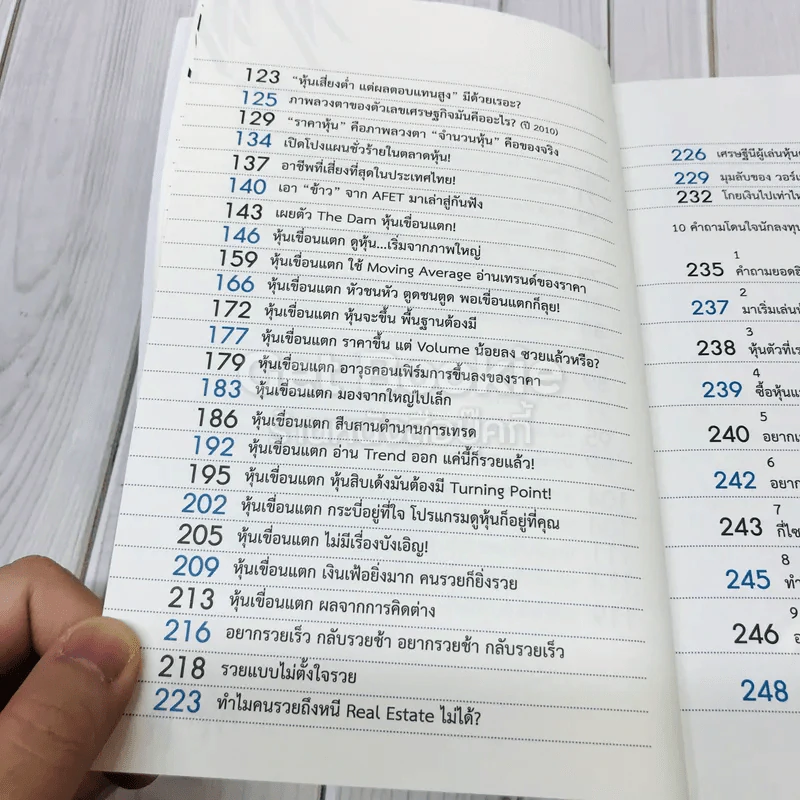 123 "หุ้นเสี่ยงต่ำ แต่ผลตอบแทนสูง" มีด้วยเรอะ?
125 ภาพลวงตาของตัวเลขเศรษฐกิจมันคืออะไร? (ปี 2010)
129 "ราคาหุ้น" คือภาพลวงตา "จำนวนหุ้น" คือของจริง
134 เปิดโปงแผนชั่วร้ายในตลาดหุ้น!
137 อาชีพที่เสี่ยงที่สุดในประเทศไทย!
140 เอา "ข้าว" จาก AFET มาเล่าสู่กันฟัง
143 เผยตัว The Dam หุ้นเขื่อนแตก!
146 หุ้นเขื่อนแตก ดูหุ้น...เริ่มจากภาพใหญ่
159 หุ้นเขื่อนแตก ใช้ Moving Average อ่านเทรนด์ของราคา
166 หุ้นเขื่อนแตก หัวชนหัว ตูดชนตูด พอเขื่อนแตกก็ลุย!
172 หุ้นเขื่อนแตก หุ้นจะขึ้น พื้นฐานต้องมี
177 หุ้นเขื่อนแตก ราคาขึ้น แต่ Volume น้อยลง ซวยแล้วหรือ?
179 หุ้นเขื่อนแตก อาวุธคอนเฟิร์มการขึ้นลงของราคา
183 หุ้นเขื่อนแตก มองจากใหญ่ไปเล็ก
186 หุ้นเขื่อนแตก สืบสานตำนานการเทรด
192 หุ้นเขื่อนแตก อ่าน Trend ออก แค่นี้ก็รวยแล้ว!
195 หุ้นเขื่อนแตก หุ้นสิบเด้งมันต้องมี Turning Point!
202 หุ้นเขื่อนแตก กระบี่อยู่ที่ใจ โปรแกรมดูหุ้นก็อยู่ที่คุณ
205 หุ้นเขื่อนแตก ไม่มีเรื่องบังเอิญ!
209 หุ้นเขื่อนแตก เงินเฟ้อยิ่งมาก คนรวยก็ยิ่งรวย
213 หุ้นเขื่อนแตก ผลจากการคิดต่าง
216 อยากรวยเร็ว กลับรวยช้า อยากรวยช้า กลับรวยเร็ว
218 รวยแบบไม่ตั้งใจรวย
223 ทำไมคนรวยถึงหนี Real Estate ไม่ได้?
226 เศรษฐีนีผู้เล่นหุ้น
229 มุมลับของ วอร์
232 โกยเงินไปเท่าไห
10 คำถามโดนใจนักลงทุน
1
235 คำถามยอดฮิ
2
237 มาเริ่มเล่น
3
238 หุ้นตัวที่เร
4
239 ซื้อหุ้น
5
240 อยาก
6
242 อยาก
7
243 กี่ไช
8
245 ทำ
9
246
248